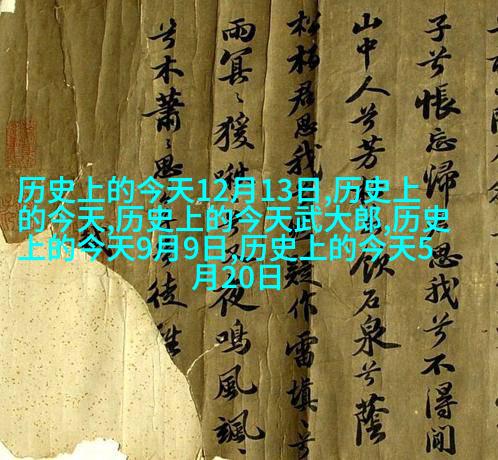 历史上的今天12月13日,历史上
的今天,历史上的今天武大郎,历史
上的今天9月9日,历史上的今天5
月20日
子兮悵忘歸思我兮不得閒
山中人兮芳飲石泉兮蔭
松柏君思我疑作雷填〻兮
雨冥〻猨啾夜鳴風颯〻
兮木蕭〻思徒離